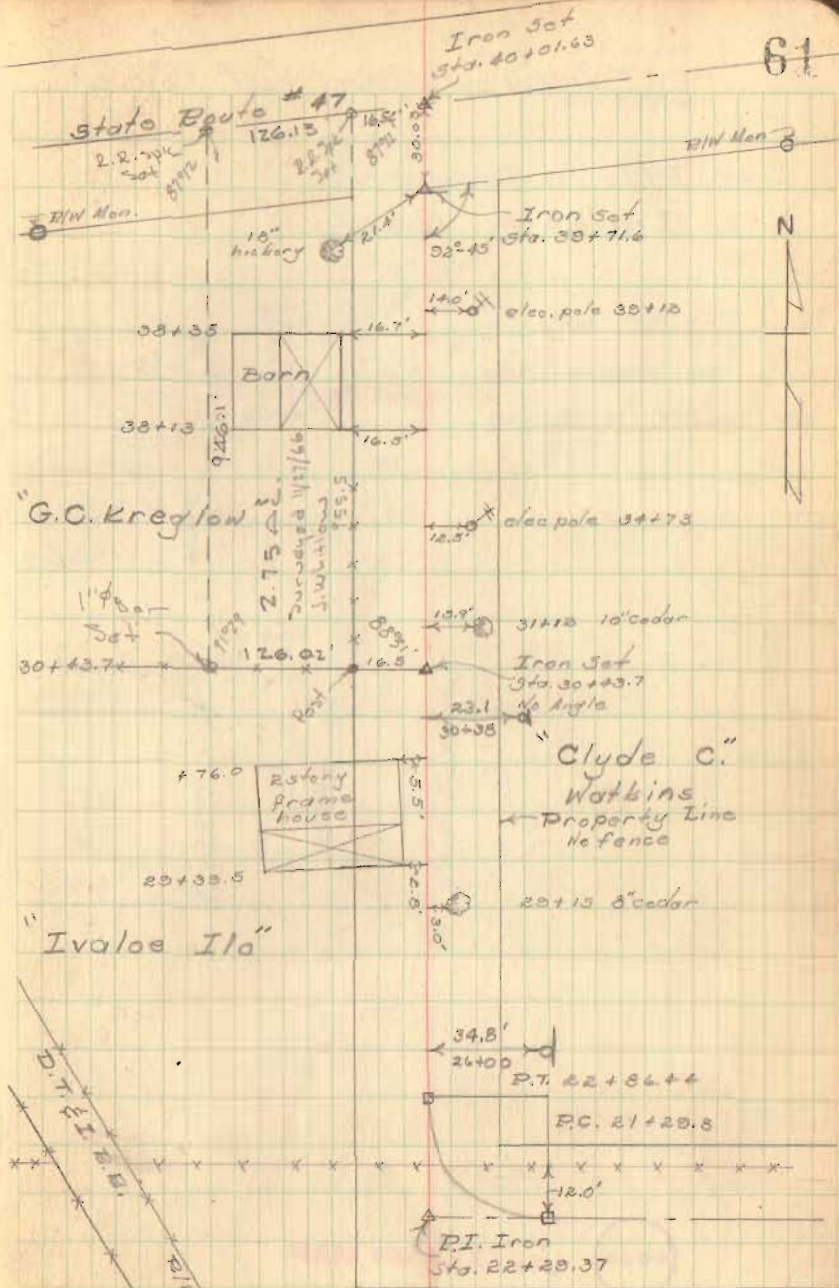 61
Iron Set
Sta. 40+01.63
State Route #47
126.13
16.56'
30.03
R.R. spk
Set
87°12
R.R. spk
Set
87°12
R/W Mon
R/W Mon.
18"
hickory
21.4'
Iron Set
Sta. 39+71.6
92°-45'
N
14.0'
elec. pole 39+18
38+35
16.7'
Barn
38+13
16.5'
946.1'
"G.C. Kreglow"
2.75 Ac.
Surveyed 11/27/66
J. Whitlow
955.5
12.5'
elec pole 34+73
1"φ Bar
Set
13.9'
31+18 10"cedar
30+43.7
126.02'
16.5
Post
Iron Set
Sta. 30+43.7
No Angle
23.1
30+38
"Clyde C."
Watkins
Property Line
No fence
+76.0
2 story
frame
house
5.5'
29+39.5
2.8'
29+15 8"cedar
3.0'
"Ivaloe Ilo"
34.8'
26+00
P.T. 22+86.44
P.C. 21+29.8
D.T. & I. R.R.
12.0'
P.I. Iron
Sta. 22+29.37